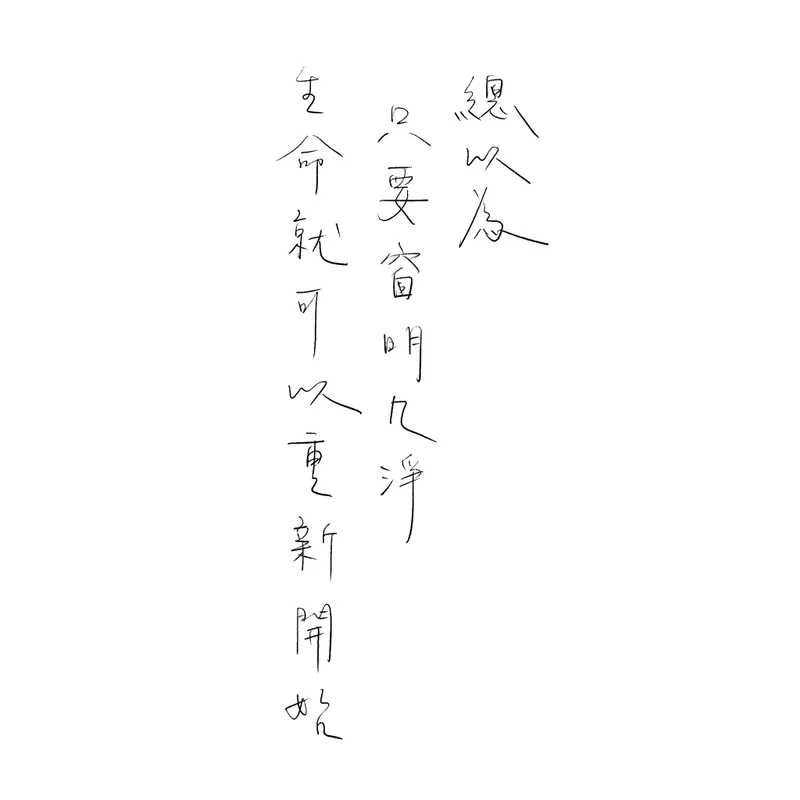 總以為
只要窗明几淨
生命就可以重新開始